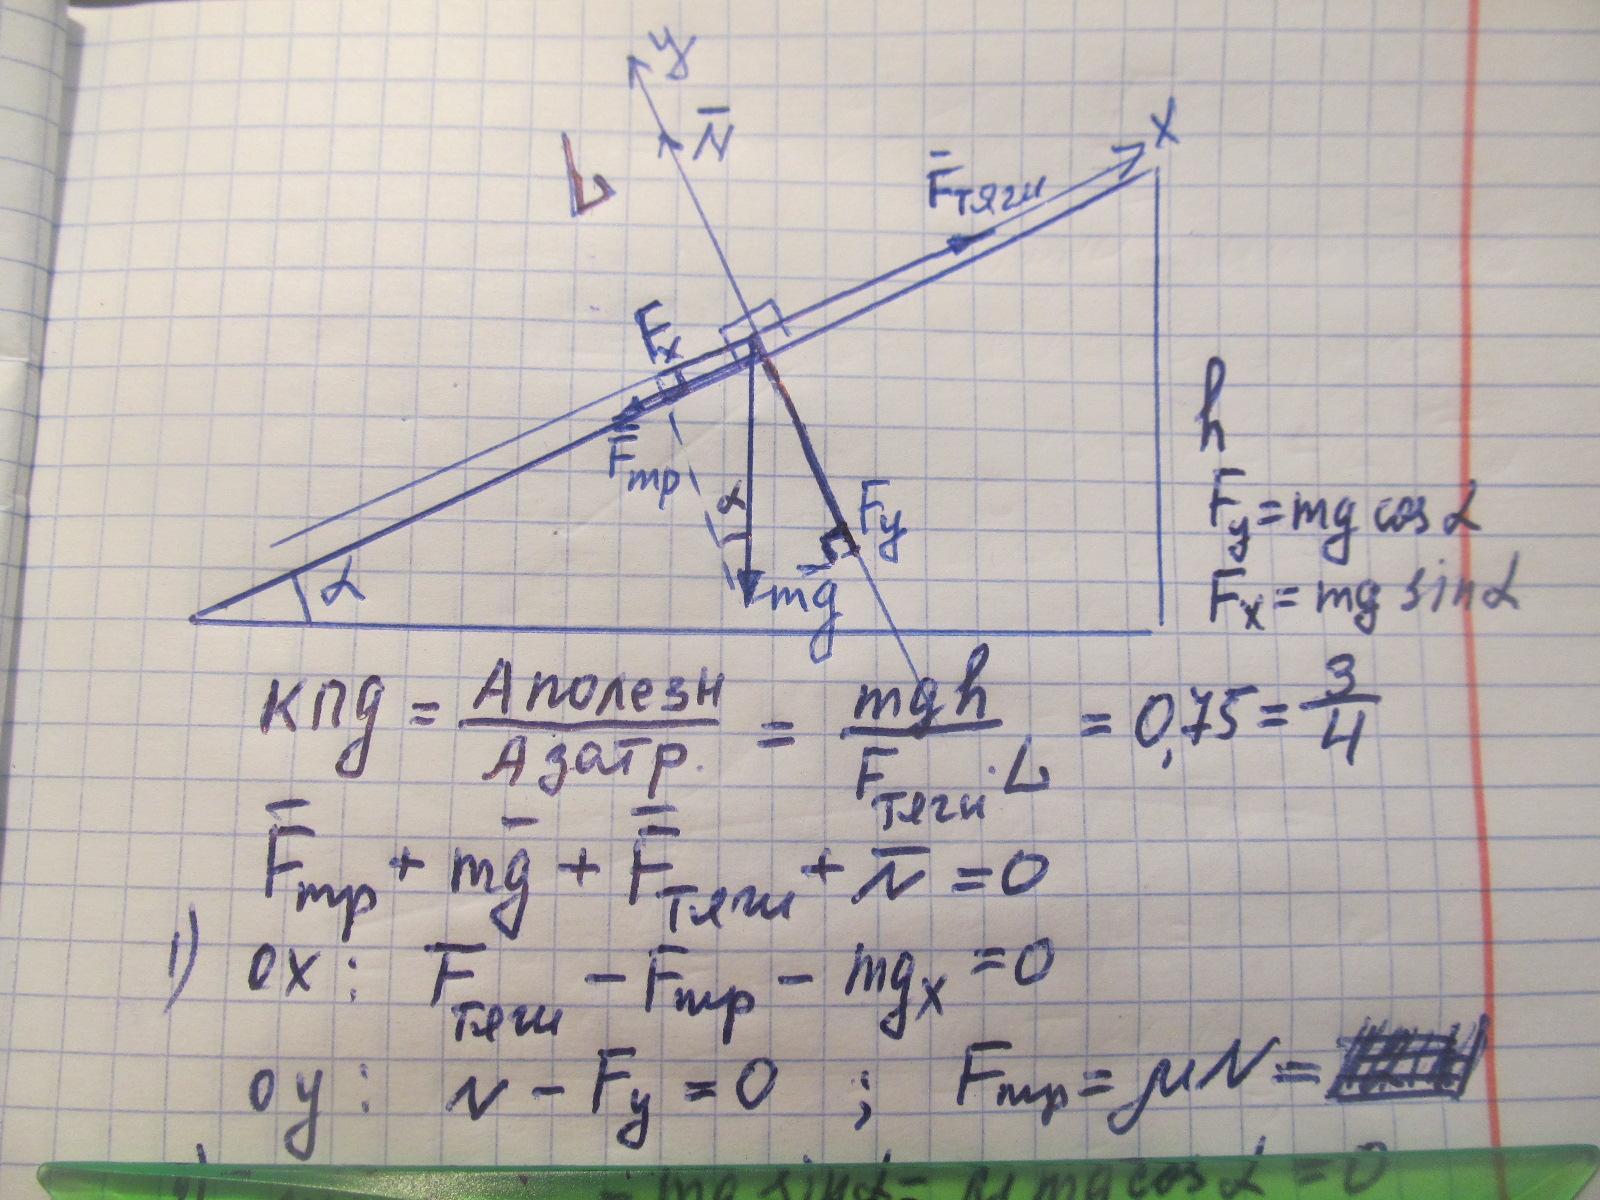 y
N̅
L
x
F̅тяги
Fx
F̅тр
h
α
Fy
Fy = mg cos α
α
mg̅
Fx = mg sin α
КПД = Aполезн / Aзатр. = mgh / Fтяги · L = 0,75 = 3/4
F̅тр + mg̅ + F̅тяги + N̅ = 0
1) ox: F̅тяги − Fтр − mgx = 0
oy: N − Fy = 0 ; Fтр = μN =
− mg sin α − μ mg cos α = 0